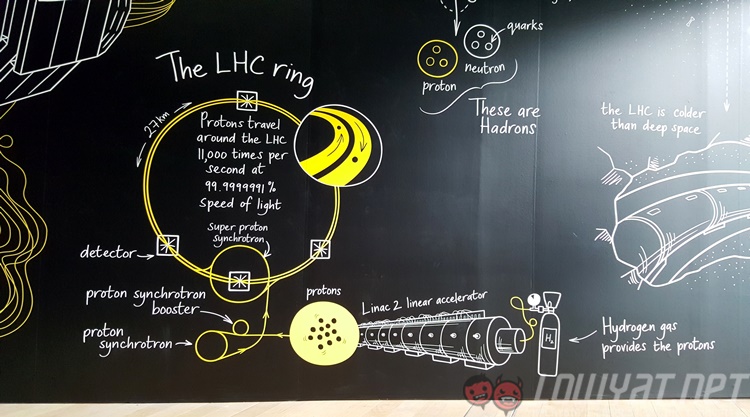 The LHC ring
27km
Protons travel
around the LHC
11,000 times per
second at
99.9999991%
speed of light
super proton
synchrotron
detector
proton synchrotron
booster
proton
synchrotron
protons
Linac 2 linear accelerator
H₂
Hydrogen gas
provides the protons
quarks
proton
neutron
These are
Hadrons
the LHC is colder
than deep space
LOWYAT.NET